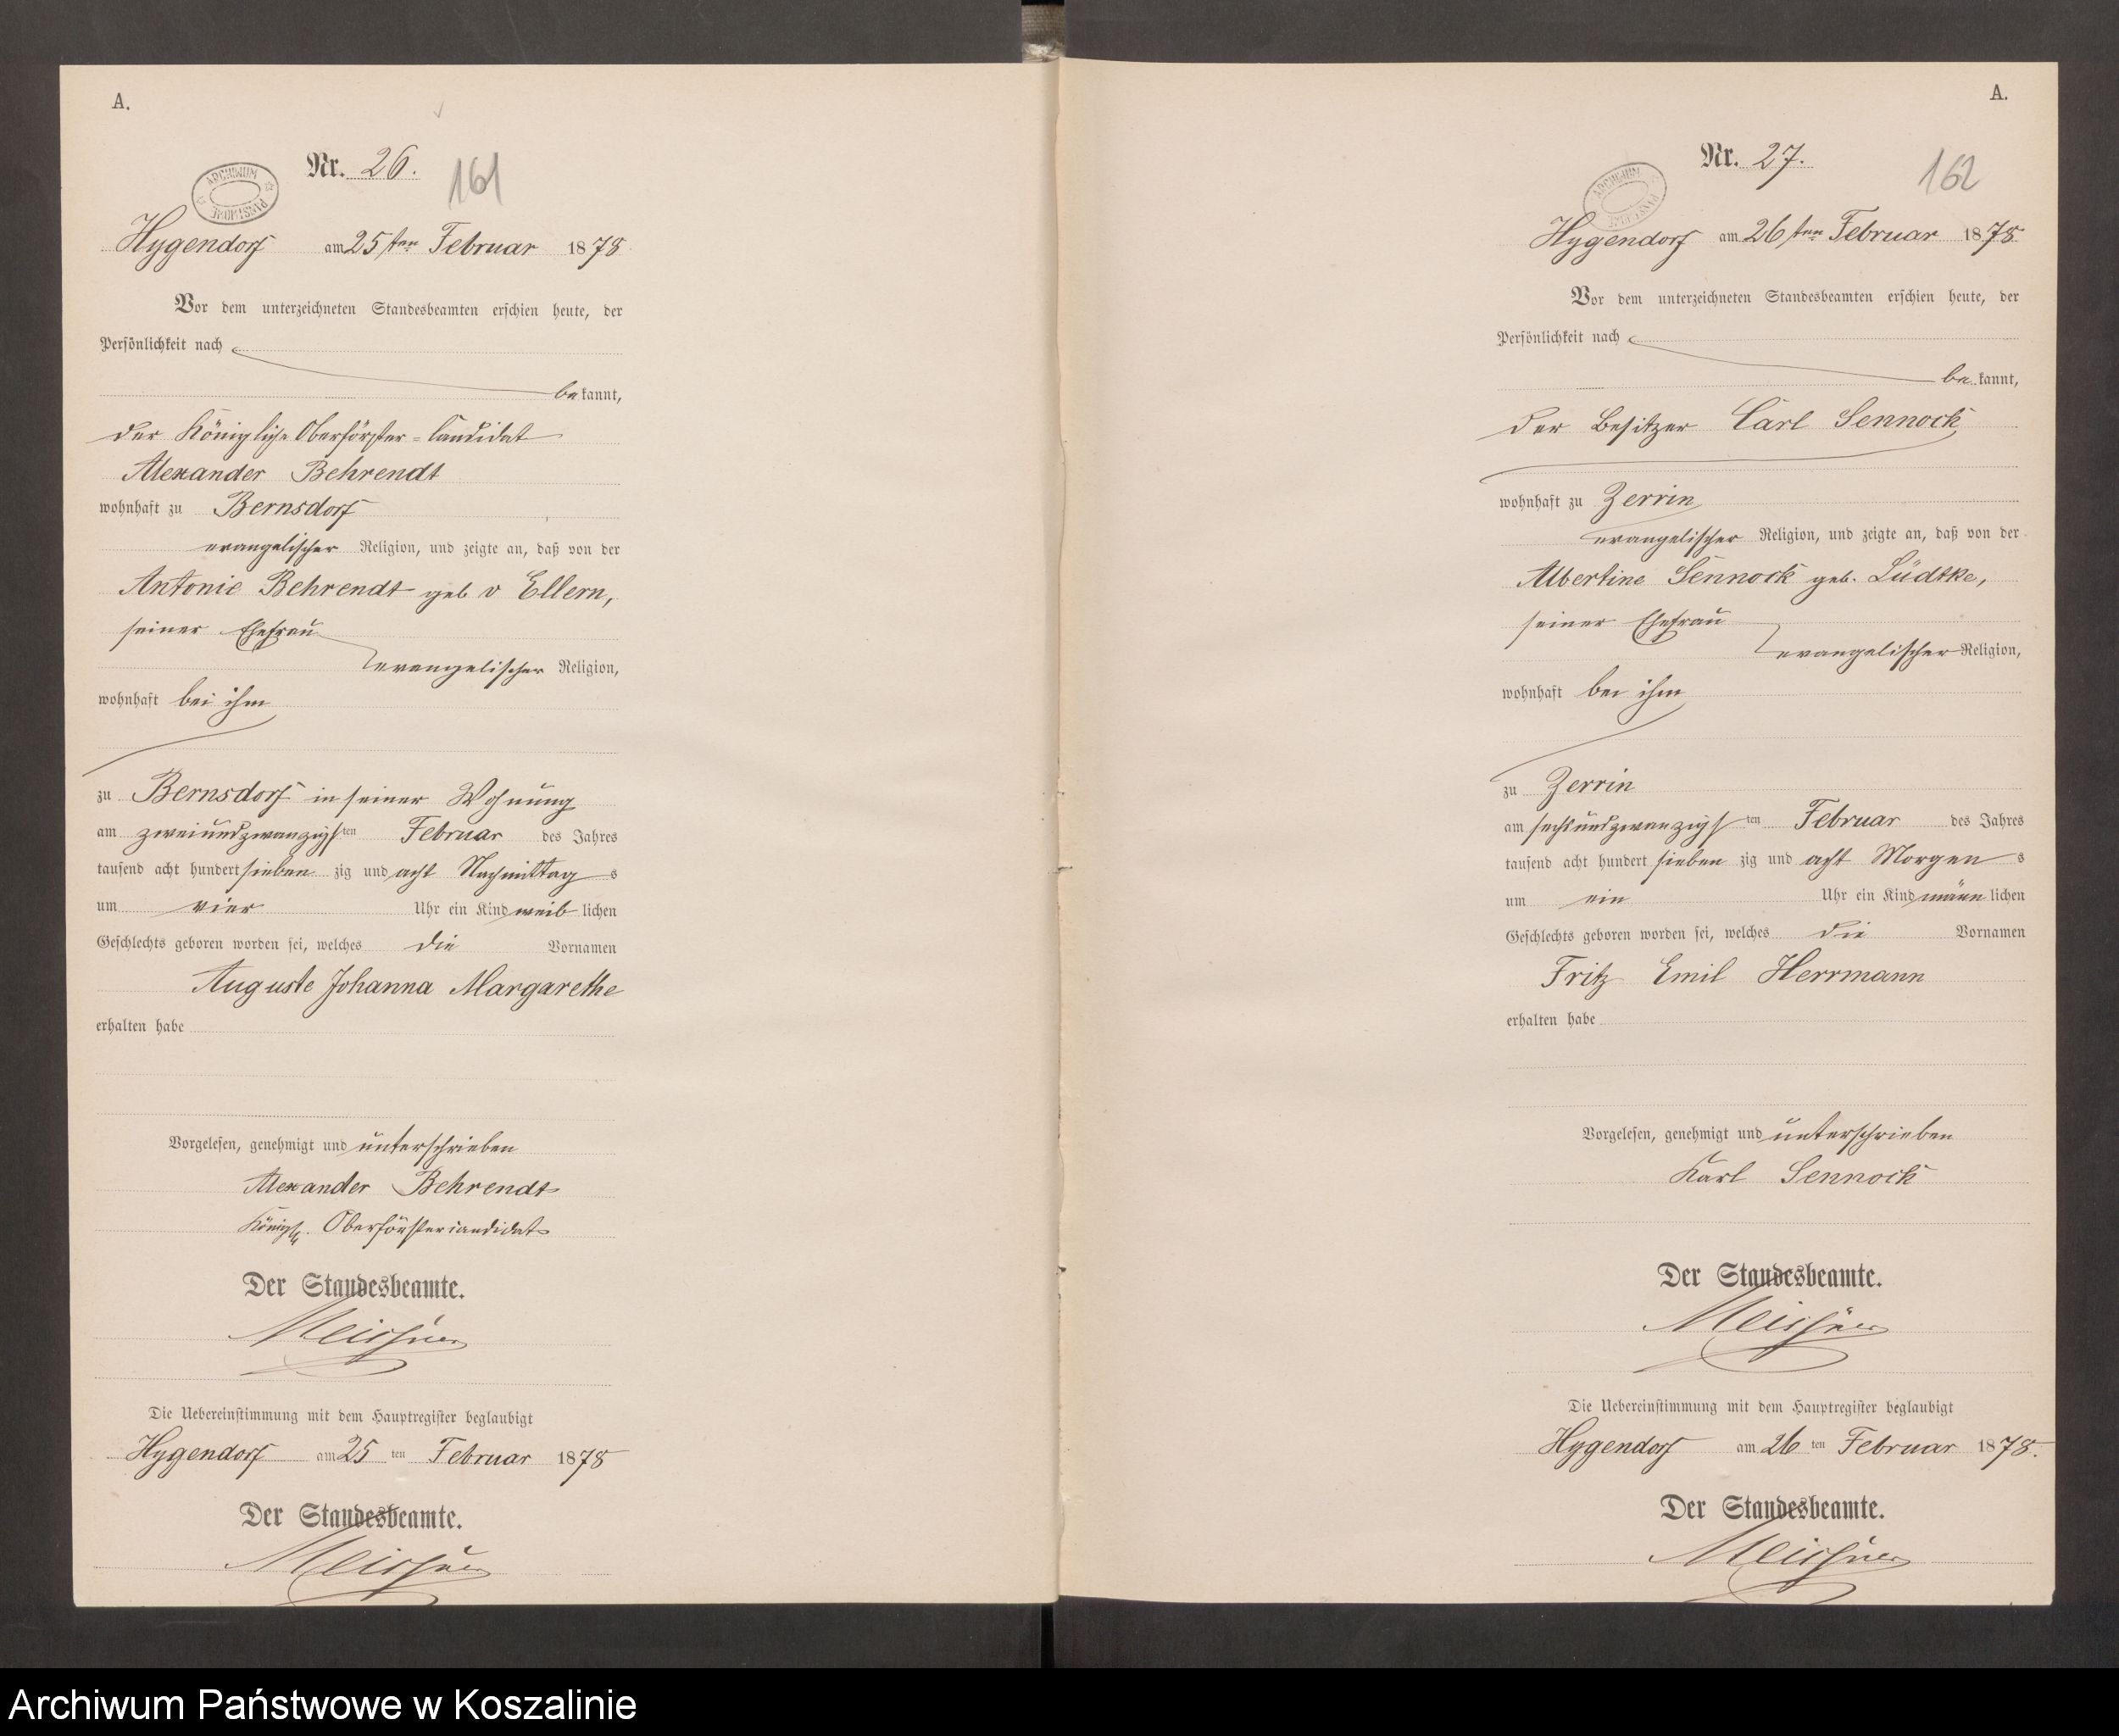 A.
Nr. 26.
161
ARCHIWUM PAŃSTWOWE
Hygendorf am 25sten Februar 1878
Vor dem unterzeichneten Standesbeamten erschien heute, der
Persönlichkeit nach
bekannt,
der Königliche Oberförster-Candidat
Alexander Behrendt
wohnhaft zu Bernsdorf
evangelischer Religion, und zeigte an, daß von der
Antonie Behrendt geb v Ellern,
seiner Ehefrau
evangelischer Religion,
wohnhaft bei ihm
zu Bernsdorf in seiner Wohnung
am zweiundzwanzigsten Februar des Jahres
tausend acht hundert siebenzig und acht Nachmittags
um vier Uhr ein Kind weiblichen
Geschlechts geboren worden sei, welches die Vornamen
Auguste Johanna Margarethe
erhalten habe
Vorgelesen, genehmigt und unterschrieben
Alexander Behrendt
Königl. Oberförstercandidat
Der Standesbeamte.
Meissner
Die Uebereinstimmung mit dem Hauptregister beglaubigt
Hygendorf am 25ten Februar 1878
Der Standesbeamte.
Meissner
A.
Nr. 27.
162
ARCHIWUM PAŃSTWOWE
Hygendorf am 26sten Februar 1878
Vor dem unterzeichneten Standesbeamten erschien heute, der
Persönlichkeit nach
bekannt,
der Besitzer Carl Sennock
wohnhaft zu Zerrin
evangelischer Religion, und zeigte an, daß von der
Albertine Sennock geb. Lüdtke,
seiner Ehefrau
evangelischer Religion,
wohnhaft bei ihm
zu Zerrin
am sechsundzwanzigsten Februar des Jahres
tausend acht hundert siebenzig und acht Morgens
um ein Uhr ein Kind männlichen
Geschlechts geboren worden sei, welches die Vornamen
Fritz Emil Herrmann
erhalten habe
Vorgelesen, genehmigt und unterschrieben
Karl Sennock
Der Standesbeamte.
Meissner
Die Uebereinstimmung mit dem Hauptregister beglaubigt
Hygendorf am 26ten Februar 1878.
Der Standesbeamte.
Meissner
Archiwum Państwowe w Koszalinie